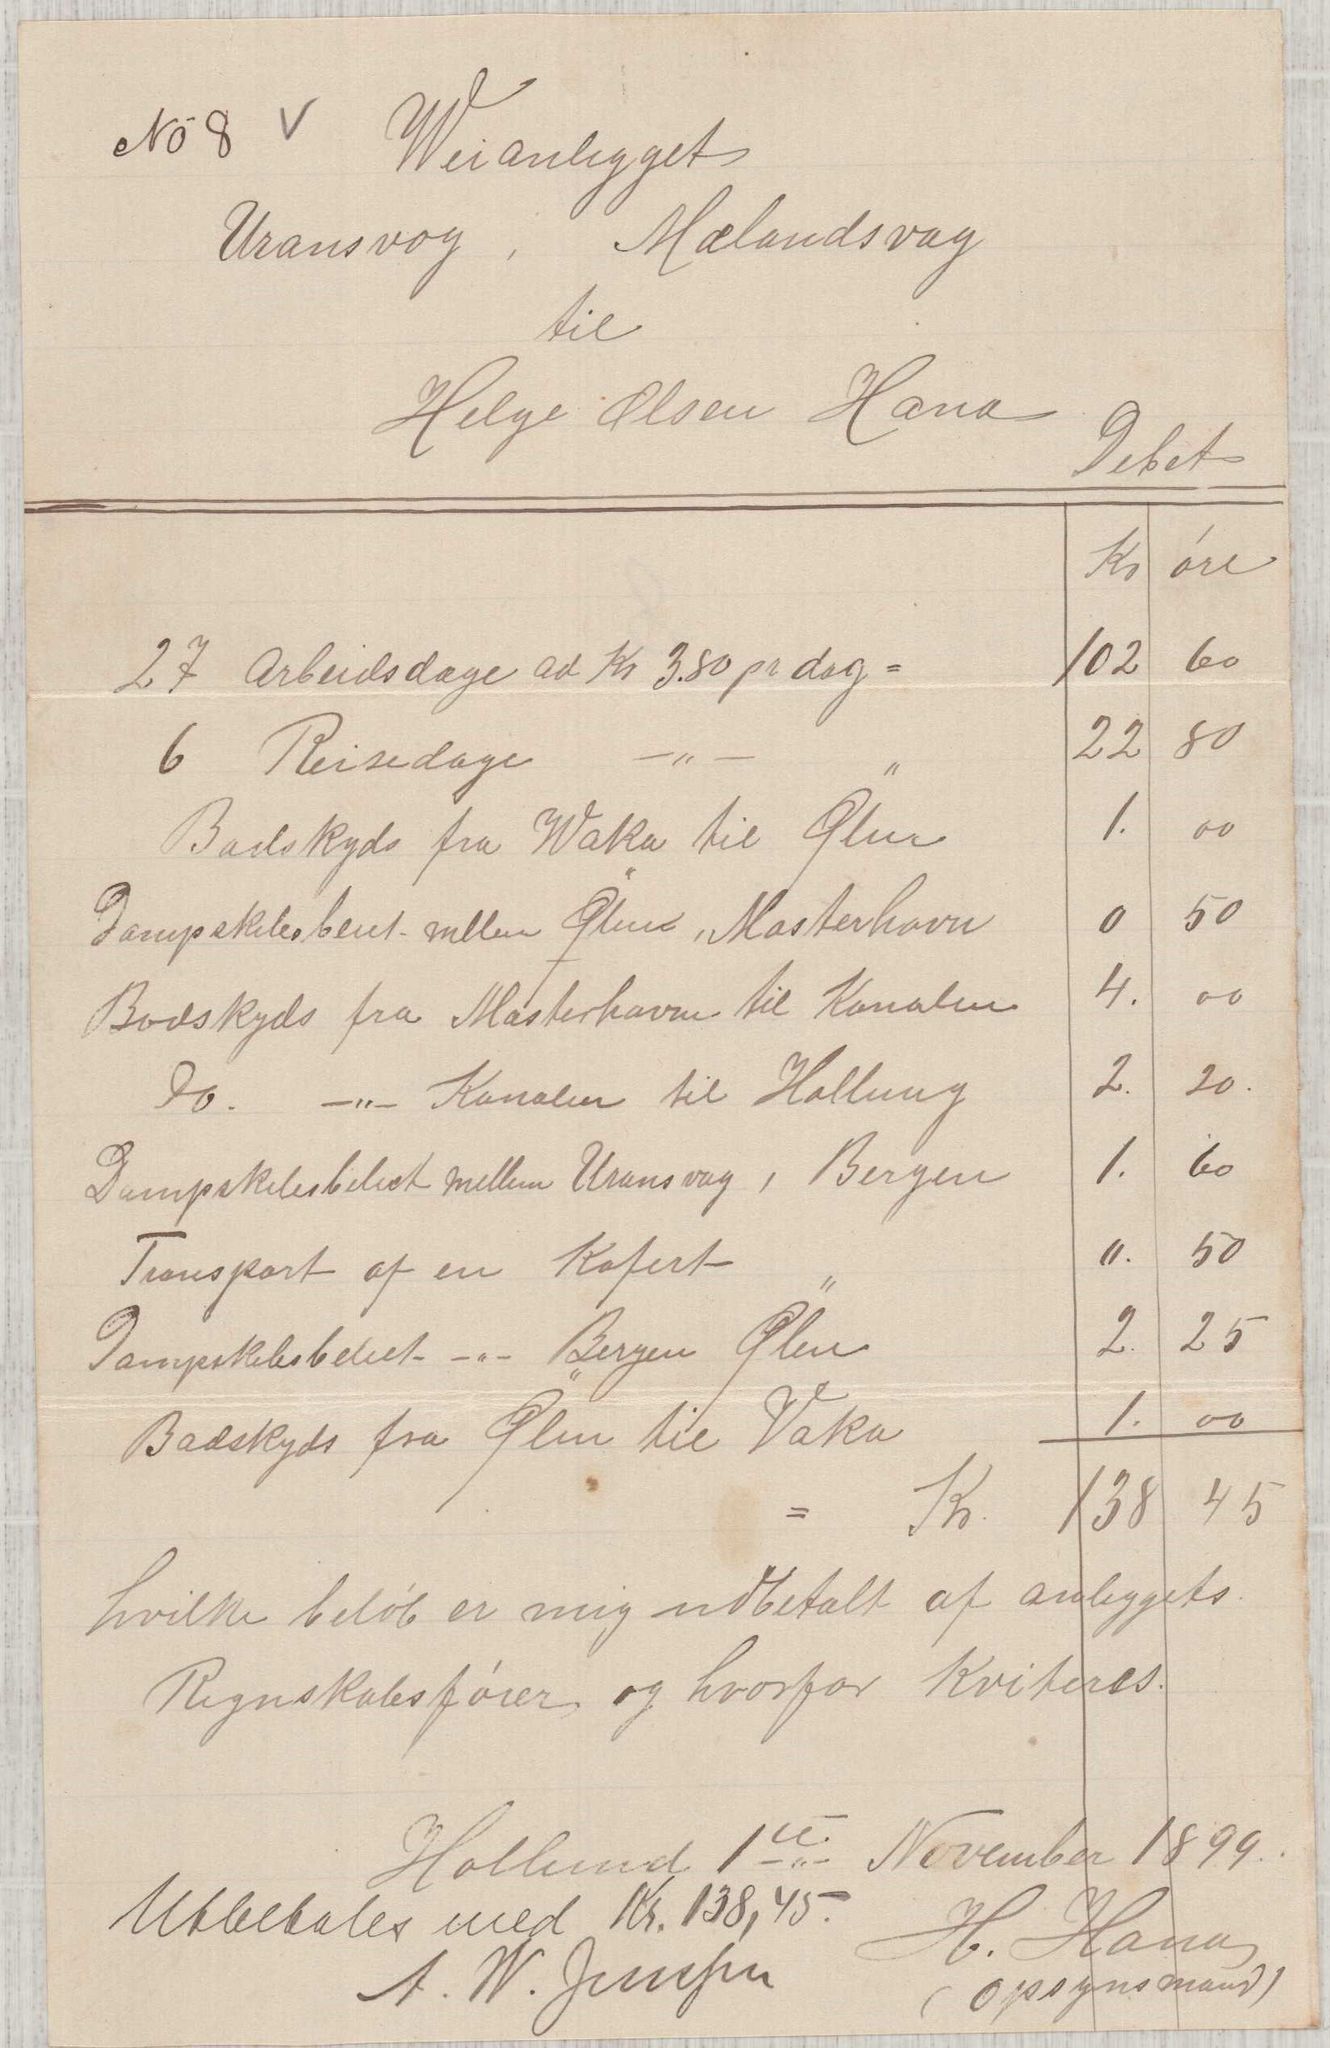 No 8 V Weianlegget
Uransvog, Mælandsvag
til
Helge Olsen Hana
Debet
Kr øre
27 Arbeidsdage ad Kr 3.80 pr dag = 102 60
6 Reisedage —"— " 22 80
Badskyds fra Waka til Ølen 1. 00
Dampskibsbeut mellem Ølen, Mosterhavn 0 50
Bodskyds fra Mosterhavn til Kanalen 4. 00
Do. —"— Kanalen til Hollung 2. 20.
Dampskibsbilect mellem Uransvag, Bergen 1. 60
Transport af en Kofert " 0. 50
Dampskibsbelect —"— Bergen Ølen 2. 25
Badskyds fra Ølen til Vaka 1. 00
= Kr. 138 45
hvilke beløb er mig udbetalt af anleggets
Regnskabsfører og hvorfor Kviteres.
Hollund 1te November 1899.
Utbetales med Kr. 138,45. H. Hana
A. W. Jenssen (Opsynsmand)